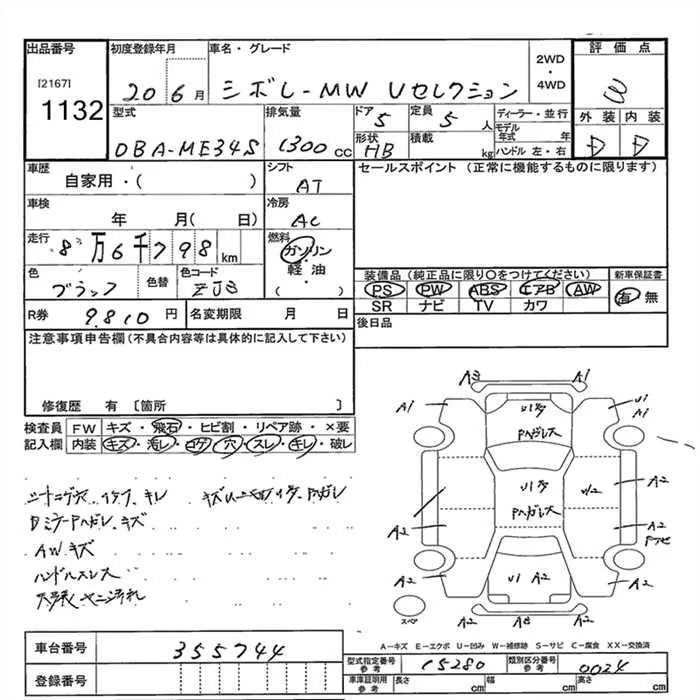 出品番号 初度登録年月 車名・グレード 評価点
[2167] 1132
20 6月 シボレ-MW Vセレクション 2WD・4WD 3
型式 排気量 ドア 定員 ディーラー・並行 外装 内装
DBA-ME34S 1300cc 5 5人 モデル年式 年 D D
形状 HB 積載 kg ハンドル 左・右
車歴 シフト セールスポイント (正常に機能するものに限ります)
自家用・( ) AT
車検 冷房
年 月( 日) AC
走行 燃料
8万6千798km ガソリン・軽油・( )
色 色替 色コード 装備品(純正品に限り〇をつけてください) 新車保証書
ブラック ZJ3 PS PW ABS エアB AW 有 無
SR ナビ TV カワ
R券 9.810円 名変期限 月 日 後日品
注意事項申告欄(不具合内容等は具体的に記入して下さい)
修復歴 有 〔箇所 〕
検査員 FW キズ・飛石・ヒビ割・リペア跡・×要
記入欄 内装 キズ・汚レ・コゲ・穴・スレ・キレ・破レ
DミラーPハガレ、キズ
AWキズ
ハンドルスレ
天張ヤニ汚れ
A3 A1
A1 U1 A1
U1 Pハガレ大
A2 U1 Pハガレ大 U2 A2
A2 A2
A2 U1 A2 A2
スペア A2 A3 A2
A-キズ E-エクボ U-凹み W-補修跡 S-サビ C-腐食 XX-交換済
車台番号 355744 型式指定番号 参考 15280 類別区分番号 参考 0024
登録番号 車庫証明用 参考 長さ cm 幅 cm 高さ cm